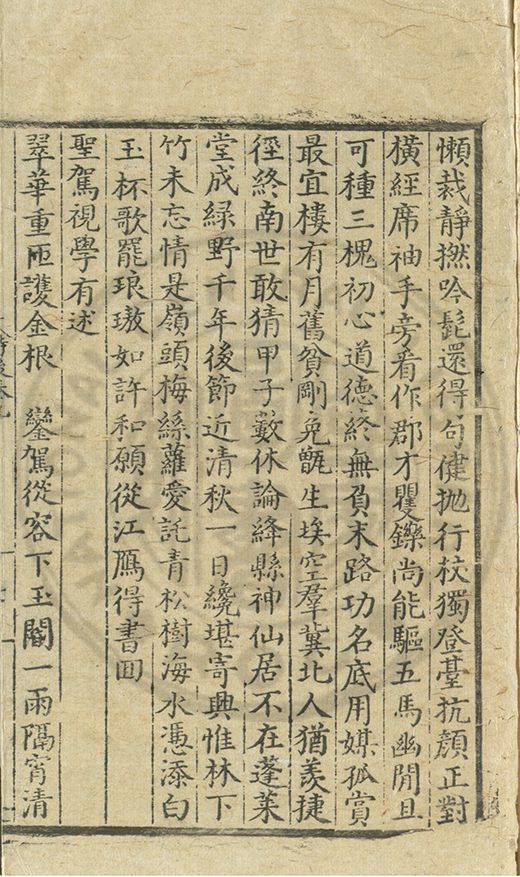 懶裁靜撚吟髭還得句健抛行杖獨登臺抗顏正對
橫經席袖手旁看作郡才矍鑠尚能驅五馬幽閒且
可種三槐初心道德終無負末路功名底用媒孤賞
最宜樓有月舊貧剛免甑生埃空羣冀北人猶羨捷
徑終南世敢猜甲子藪休論絳縣神仙居不在蓬萊
堂成緑野千年後節近清秋一日纔堪寄興惟林下
竹未忘情是嶺頭梅絲蘿愛託青松樹海水憑添白
玉杯歌罷琅璈如許和願從江鴈得書囬
聖駕視學有述
翠華重匝護金根 鑾駕從容下玉閽一雨隔宵清